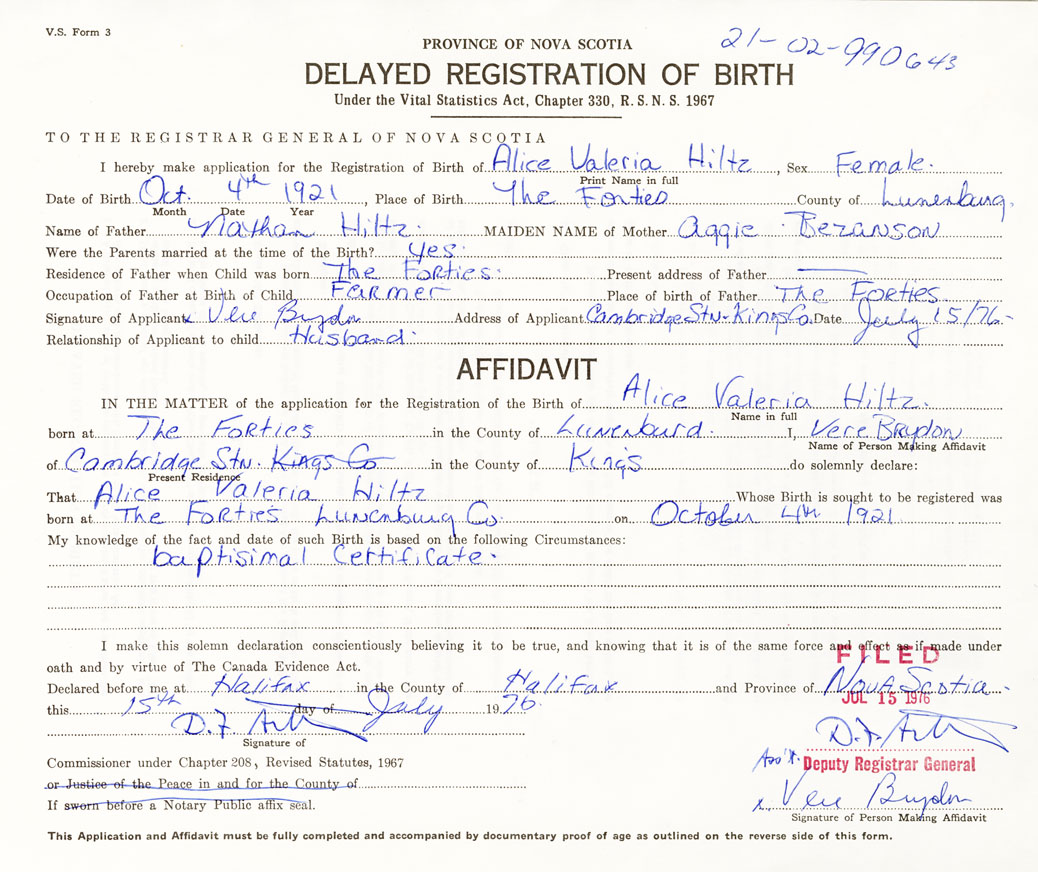 V.S. Form 3
21-02-990643
PROVINCE OF NOVA SCOTIA
DELAYED REGISTRATION OF BIRTH
Under the Vital Statistics Act, Chapter 330, R.S.N.S. 1967
TO THE REGISTRAR GENERAL OF NOVA SCOTIA
I hereby make application for the Registration of Birth of Alice Valeria Hiltz, Sex Female.
Print Name in full
Date of Birth Oct. 4th 1921, Place of Birth The Forties County of Lunenburg.
Month Date Year
Name of Father Nathan Hiltz. MAIDEN NAME of Mother Aggie Bezanson
Were the Parents married at the time of the Birth? yes.
Residence of Father when Child was born The Forties. Present address of Father —
Occupation of Father at Birth of Child Farmer Place of birth of Father The Forties
Signature of Applicant x Vere Brydon Address of Applicant Cambridge Stn. Kings Co. Date July 15/76-
Relationship of Applicant to child Husband.
AFFIDAVIT
IN THE MATTER of the application for the Registration of the Birth of Alice Valeria Hiltz.
Name in full
born at The Forties in the County of Lunenburd. I, Vere Brydon
Name of Person Making Affidavit
of Cambridge Stn. Kings Co in the County of Kings do solemnly declare:
Present Residence
That Alice Valeria Hiltz Whose Birth is sought to be registered was
born at The Forties Lunenburg Co. on October 4th 1921
My knowledge of the fact and date of such Birth is based on the following Circumstances:
baptisimal Certificate.
I make this solemn declaration conscientiously believing it to be true, and knowing that it is of the same force and effect as if made under
oath and by virtue of The Canada Evidence Act.
FILED
Declared before me at Halifax in the County of Halifax and Province of Nova Scotia-
JUL 15 1976
this 15th day of July 1976.
D.F.
D.F.
Signature of
Commissioner under Chapter 208, Revised Statutes, 1967
Ass't. Deputy Registrar General
or Justice of the Peace in and for the County of
x Vere Brydon
If sworn before a Notary Public affix seal.
Signature of Person Making Affidavit
This Application and Affidavit must be fully completed and accompanied by documentary proof of age as outlined on the reverse side of this form.